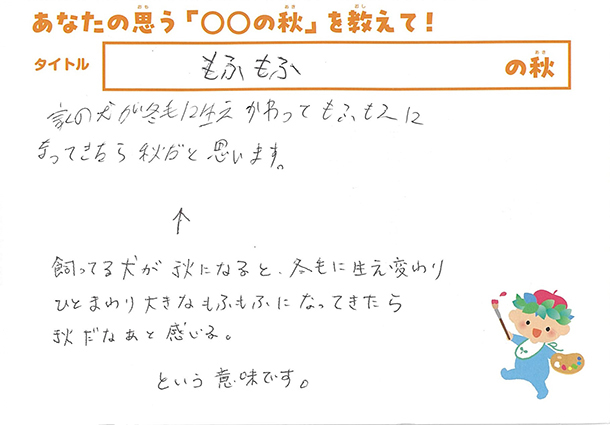 あなたの思う「〇〇の秋」を教えて！
タイトル もふもふ の秋
家の犬が冬毛に生えかわってもふもふに
なってきたら秋だと思います。
↑
飼ってる犬が秋になると、冬毛に生え変わり
ひとまわり大きなもふもふになってきたら
秋だなぁと感じる。
という意味です。